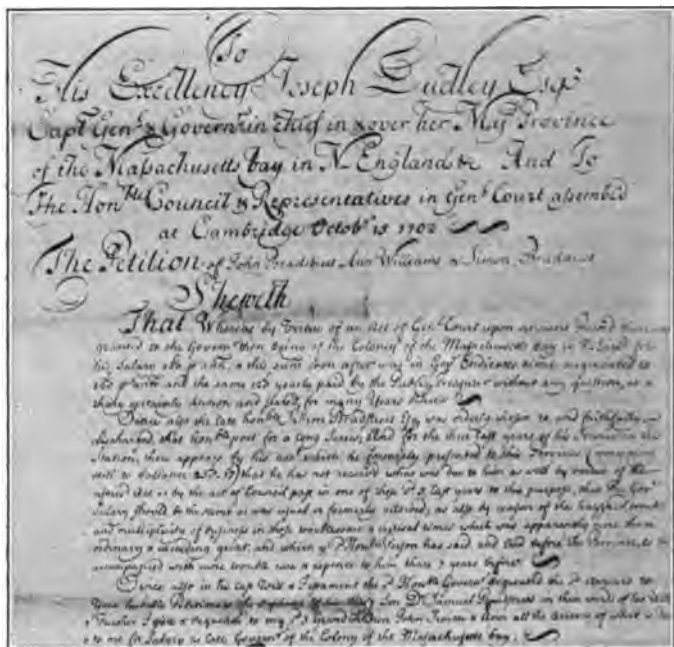 To
His Excellency Joseph Dudley Esqr
Capt Genl & Governr in Chief in & over her Maj Province
of the Massachusetts bay in N England &c And To
The Honble Council & Representatives in Genl Court assembled
at Cambridge Octobr 15 1702
The Petition of John Bradstreet Ann Williams & Simon Bradstreet
Sheweth
That Whereas by Virtue of an Act of Genl Court upon
granted to the Governr then being of the Colony of the Massachusetts bay in for
his Salary & this sum soon after was in Govr Endicotts time augmented to
and the same yearly paid by the Publiq Treasurer without any question, as a
thing certainly known and stated, for many Years
Since also the late honble Simon Bradstreet Esq was orderly chosen to and faithfully
discharged, that honble post for a long Series, And for the three last years of his
Station, there appears by his acct which he formerly presented to this Province
that he has not received what was due to him as well by virtue of the
Act as by the act of Council past in one of these 3 last years to this purpose, that the Govr
Salary should be the same as was usual or formerly allowed, as also by reason of the
and multiplicity of business in those troublesome & critical times which was apparently more then
ordinary & exceeding great, and which Honble person has said and before the Province, to be
accompanied with more trouble care & expence to him then 7 years before
Since also in his last Will & Testament the Honble Governr bequeathed the
Your humble Petitioners the of his Son Dr Samuel Bradstreet in these words of his
Further I give & bequeath to my 3 Grand Children John Simon & Ann all the arrears of what is due
to me for Salary as late Governr of the Colony of the Massachusets bay.